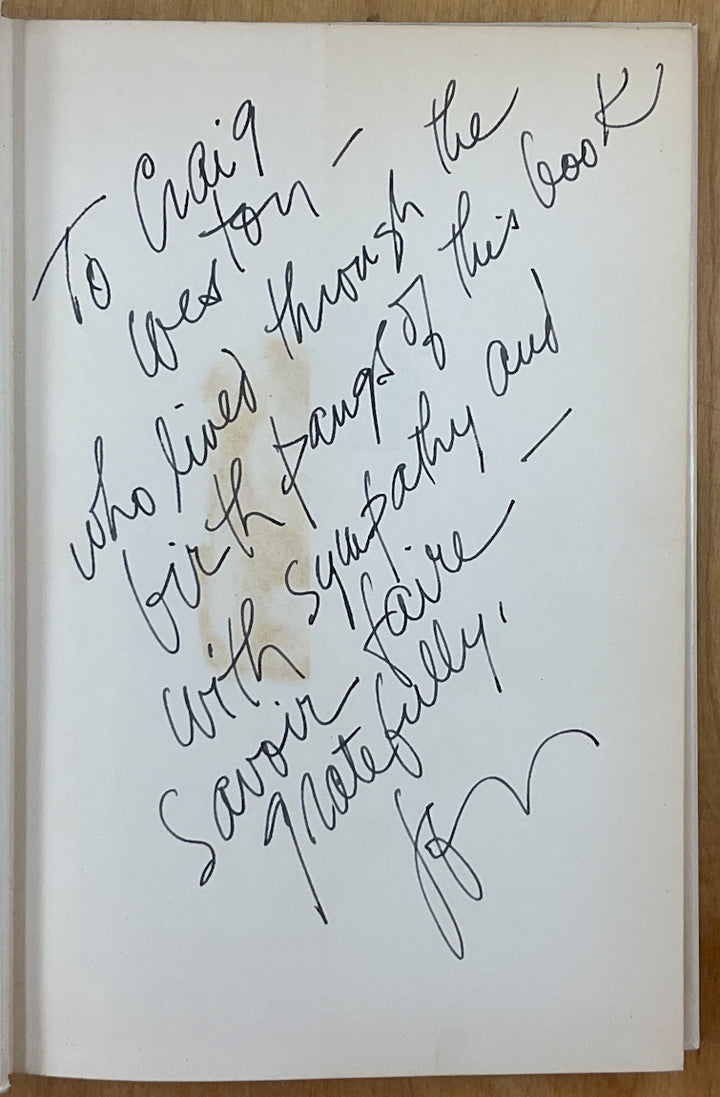 To Craig
Weston —
who lived through the
birth pangs of this book
with sympathy and
savoir faire —
gratefully,